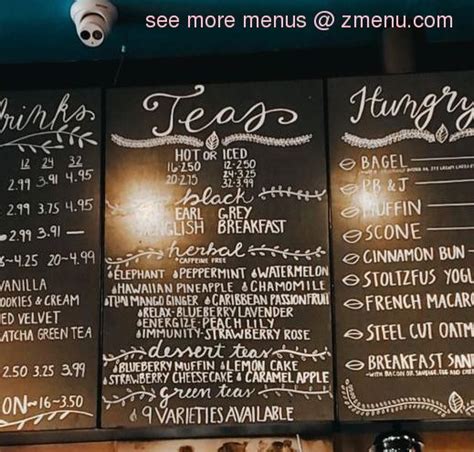 see more menus @ zmenu.com
Drinks
12 24 32
2.99 3.91 4.95
2.99 3.75 4.95
2.99 3.91 —
~4.25 20~4.99
VANILLA
COOKIES & CREAM
RED VELVET
MATCHA GREEN TEA
2.50 3.25 3.99
ON~16~3.50
Teas
HOT OR ICED
16-2.50 12-2.50
20-2.75 24-3.25
32-3.99
black
EARL GREY
ENGLISH BREAKFAST
herbal
CAFFEINE FREE
ELEPHANT PEPPERMINT WATERMELON
HAWAIIAN PINEAPPLE CHAMOMILE
THAI MANGO GINGER CARIBBEAN PASSIONFRUIT
RELAX-BLUEBERRY LAVENDER
ENERGIZE-PEACH LILY
IMMUNITY-STRAWBERRY ROSE
dessert teas
BLUEBERRY MUFFIN LEMON CAKE
STRAWBERRY CHEESECAKE CARAMEL APPLE
green teas
9 VARIETIES AVAILABLE
Hungry
BAGEL
PB & J
MUFFIN
SCONE
CINNAMON BUN -
STOLTZFUS YOG
FRENCH MACAR
STEEL CUT OATM
BREAKFAST SAN